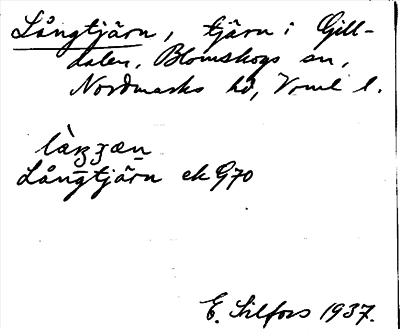 Långtjärn, tjärn i Gill-
dalen, Blomskogs sn,
Nordmarks hd, Vrml l.
làŋʒæn
Långtjärn ek G70
E. Silfors 1937.